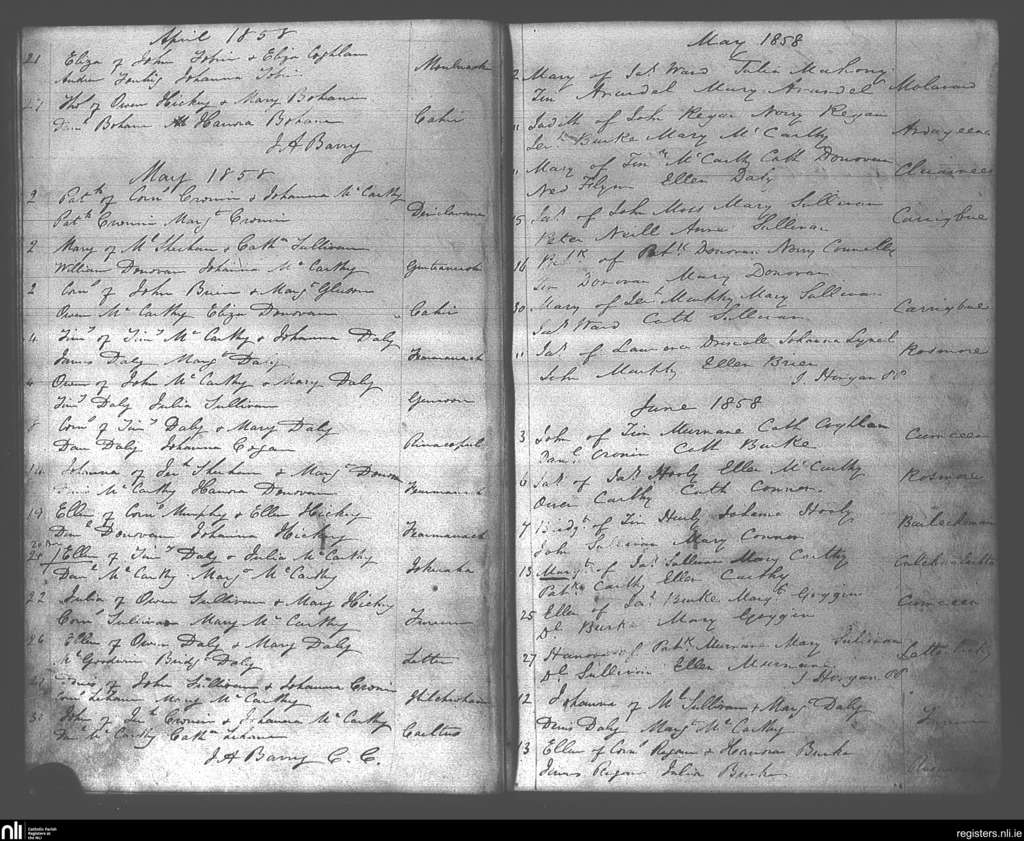 April 1858
21 Eliza of John Tobin & Eliza Coghlan
Andrew Johanna Tobin
27 Thos of Owen Hickey & Mary Bohane
Danl Bohane Hanora Bohane Cahir
J A Barry
May 1858
2 Patk of Corns Cronin & Johanna McCarthy
Patk Cronin Margt Cronin
2 Mary of Ml Sheehan & Cathn Sullivan
William Donovan Johanna McCarthy
2 Corns of John Brien & Margt Glueson
Owen McCarthy Eliza Donovan Cahir
4 Timy of Timy McCarthy & Johanna Daly
James Daly Margt Daly
4 Owen of John McCarthy & Mary Daly
Timy Daly Julia Sullivan
8 Corns of Timy Daly & Mary Daly
Dan Daly Johanna Regan
14 Johanna of Jerh Sheehan & Margt Donovan
McCarthy Hanora Donovan
19 Ellen of Corns Murphy & Ellen Hickey
Danl Donovan Johanna Hickey
Ellen of Timy Daly & Julia McCarthy
Danl McCarthy Margt McCarthy
22 Julia of Owen Sullivan & Mary Hickey
Corns Sullivan Mary McCarthy
26 Ellen of Owen Daly & Mary Daly
Ml Goodwin Bridgt Daly Letter
Denis of John Sullivan & Johanna Cronin
Corns Mary McCarthy
31 John of Cronin & Johanna McCarthy
McCarthy Cathn
J A Barry C. C.
May 1858
2 Mary of Jas Ward Julia Mahony
Tim Arundel Mary Arundel
" of John Regan Nory Regan
Jerh Burke Mary McCarthy
" Mary of Timy McCarthy Cath Donovan
Ned Flynn Ellen Daly
15 Jas of John Moss Mary Sullivan
Peter Neill Anne Sullivan Carrigbue
16 Patk of Patk Donovan Nory Connelly
Tim Donovan Mary Donovan
30 Mary of Jerh Murphy Mary Sullivan
Jas Ward Cath Sullivan Carrigbue
" Jas of Lawrence Driscoll Johanna
John Murphy Ellen Brien Rosmore
J Horgan PP
June 1858
3 John of Tim Murnane Cath Coghlan
Danl Cronin Cath Burke
6 Jas of Jas Hooly Ellen McCarthy
Owen Carthy Cath Connor Rosmore
7 Bridgt of Tim Hurly Johanna Hooly
John Mary Connor
13 Margt of Jas Sullivan Mary Carthy
Patk Carthy Ellen Carthy
25 Ellen of Jas Burke Margt Goggin
Dl Burke Mary Goggin
27 Hanora of Patk Murnane Mary Sullivan
Dl Sullivan Ellen Murnane
J Horgan PP
12 Johanna of Ml Sullivan & Margt Daly
Denis Daly Margt McCarthy
13 Ellen of Corns Regan & Hanora Burke
James Regan Julia Burke
nli
Catholic Parish
Registers at
the NLI
registers.nli.ie